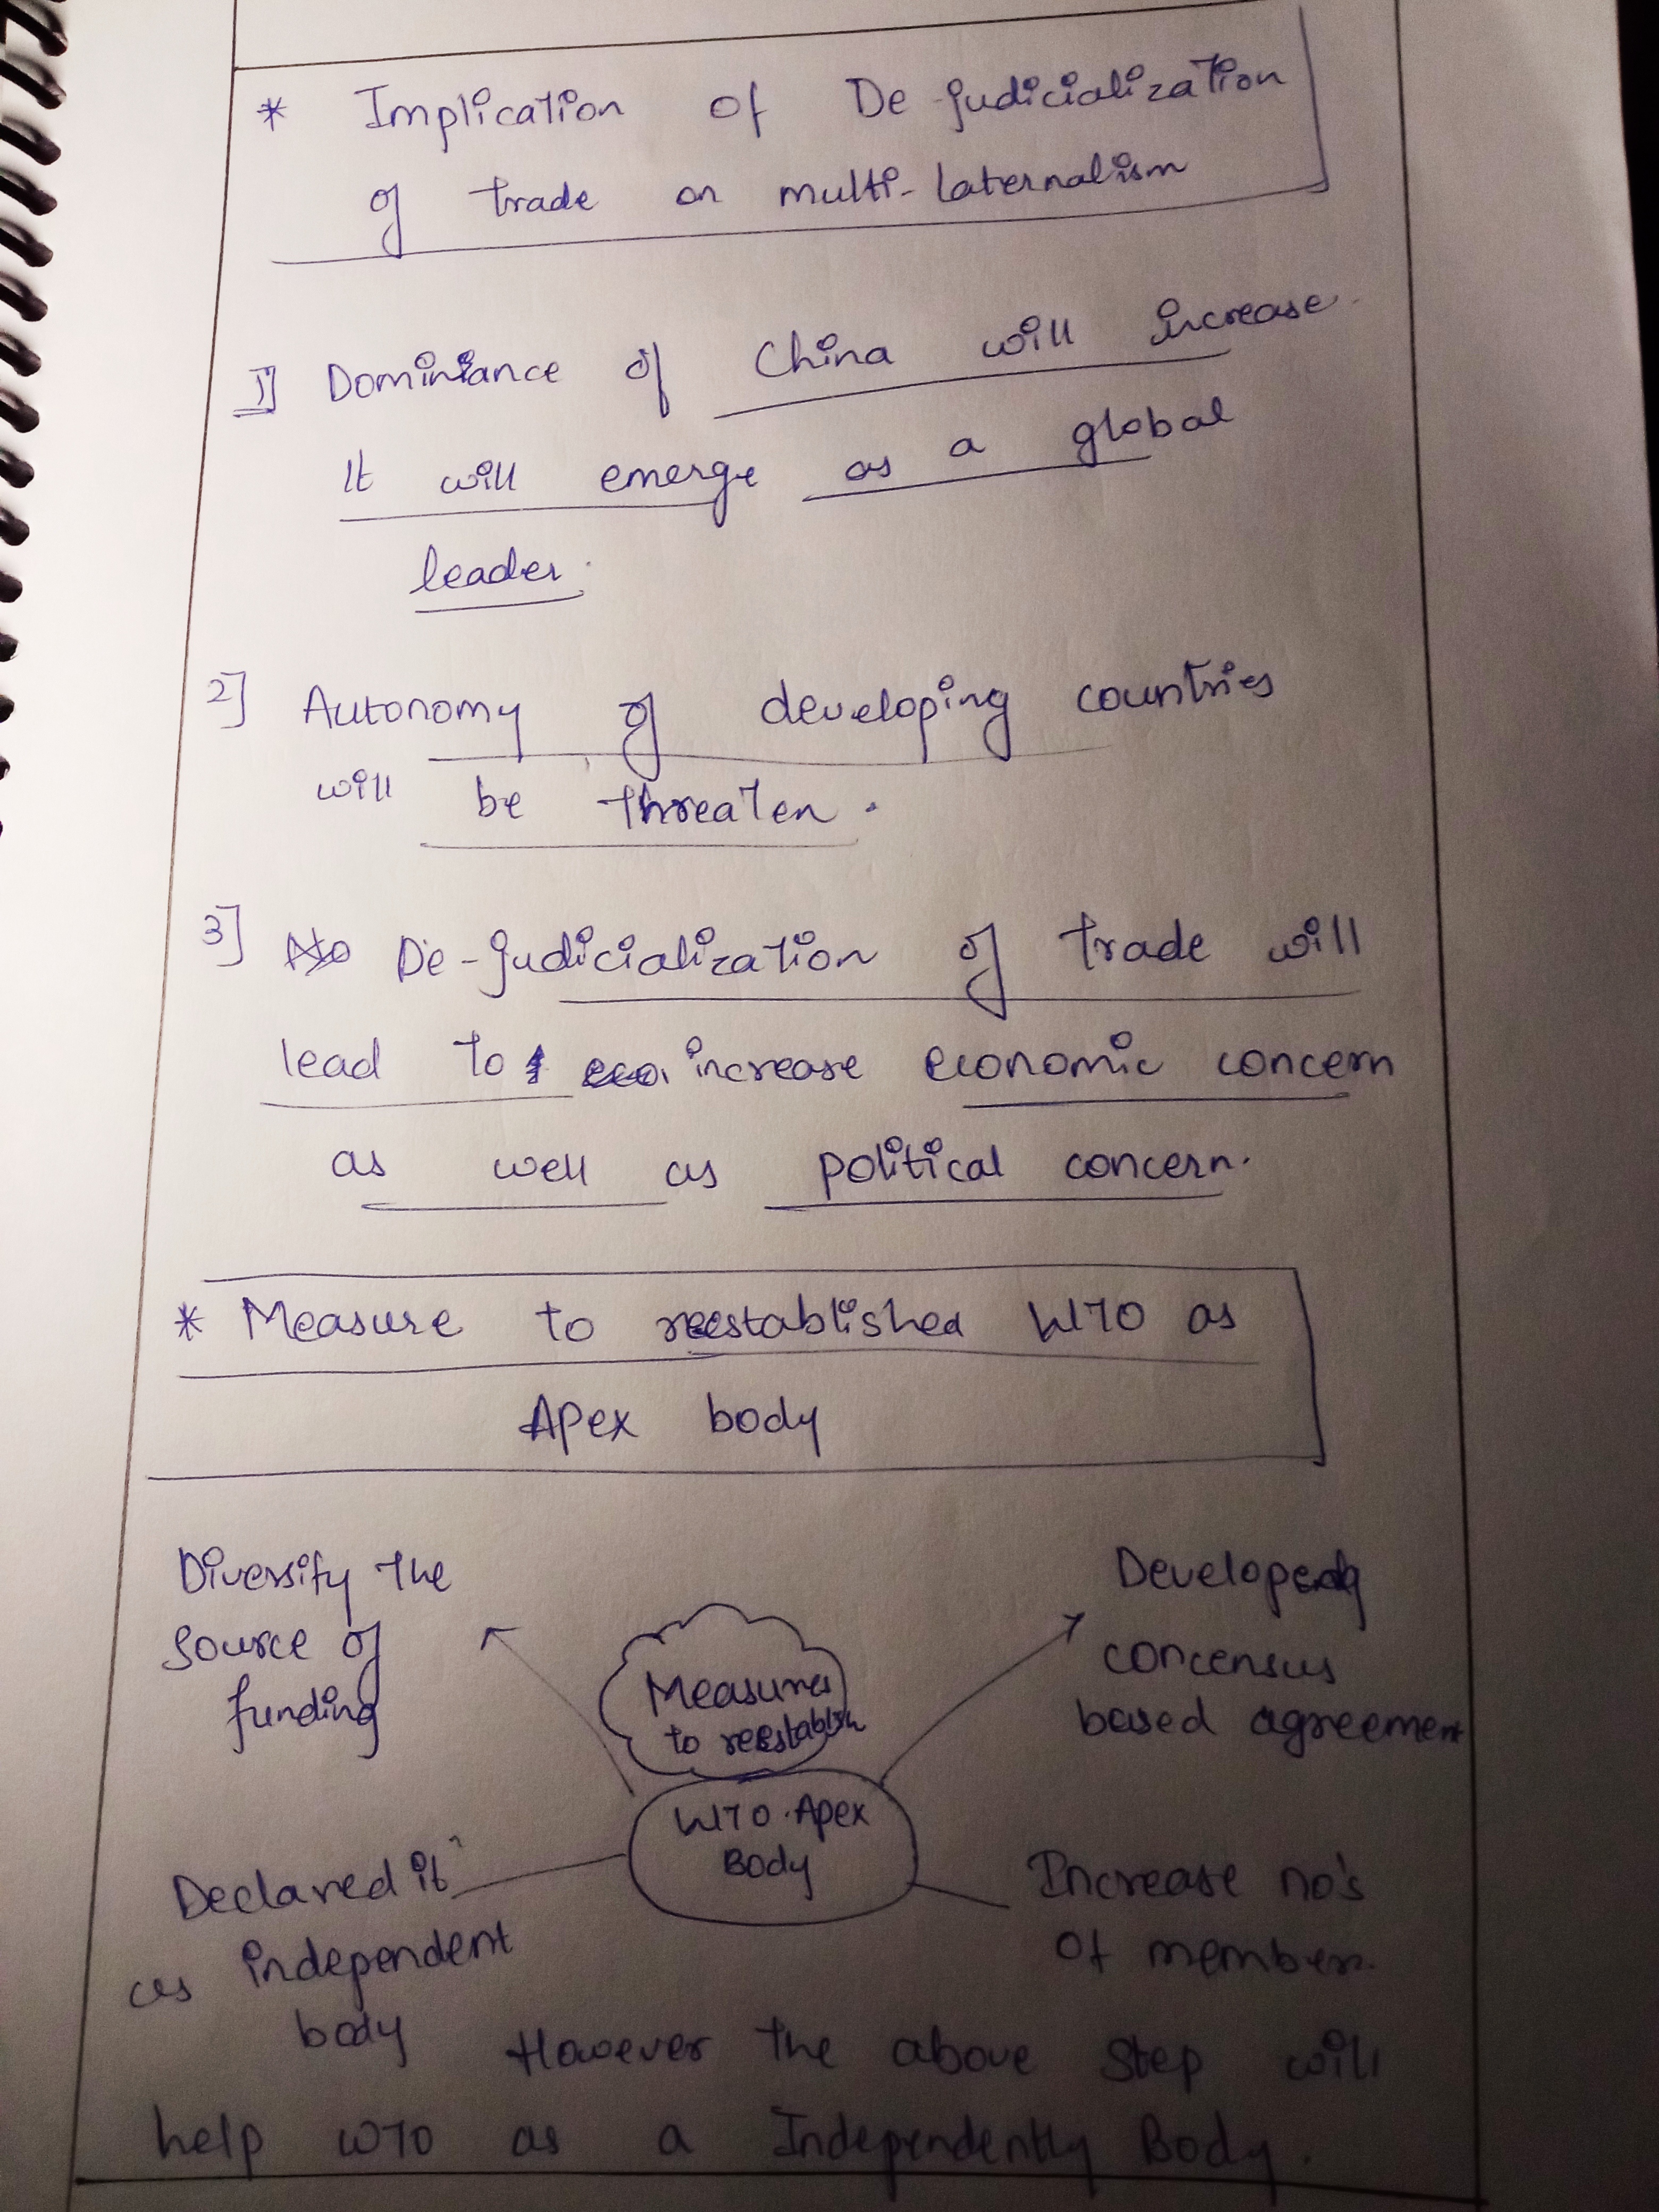 * Implication of De-judicialization
of trade on multi-laternalism
1] Dominiance of China will increase.
It will emerge as a global
leader.
2] Autonomy of developing countries
will be threaten.
3] De-judicialization of trade will
lead to increase economic concern
as well as political concern.
* Measure to reestablished WTO as
Apex body
Diversify the
source of
funding
Measures
to reestablish
WTO Apex
Body
consensus
based agreement
Declared it
as independent
body
Increase no's
of member.
However the above step will
help WTO as a Independently Body.